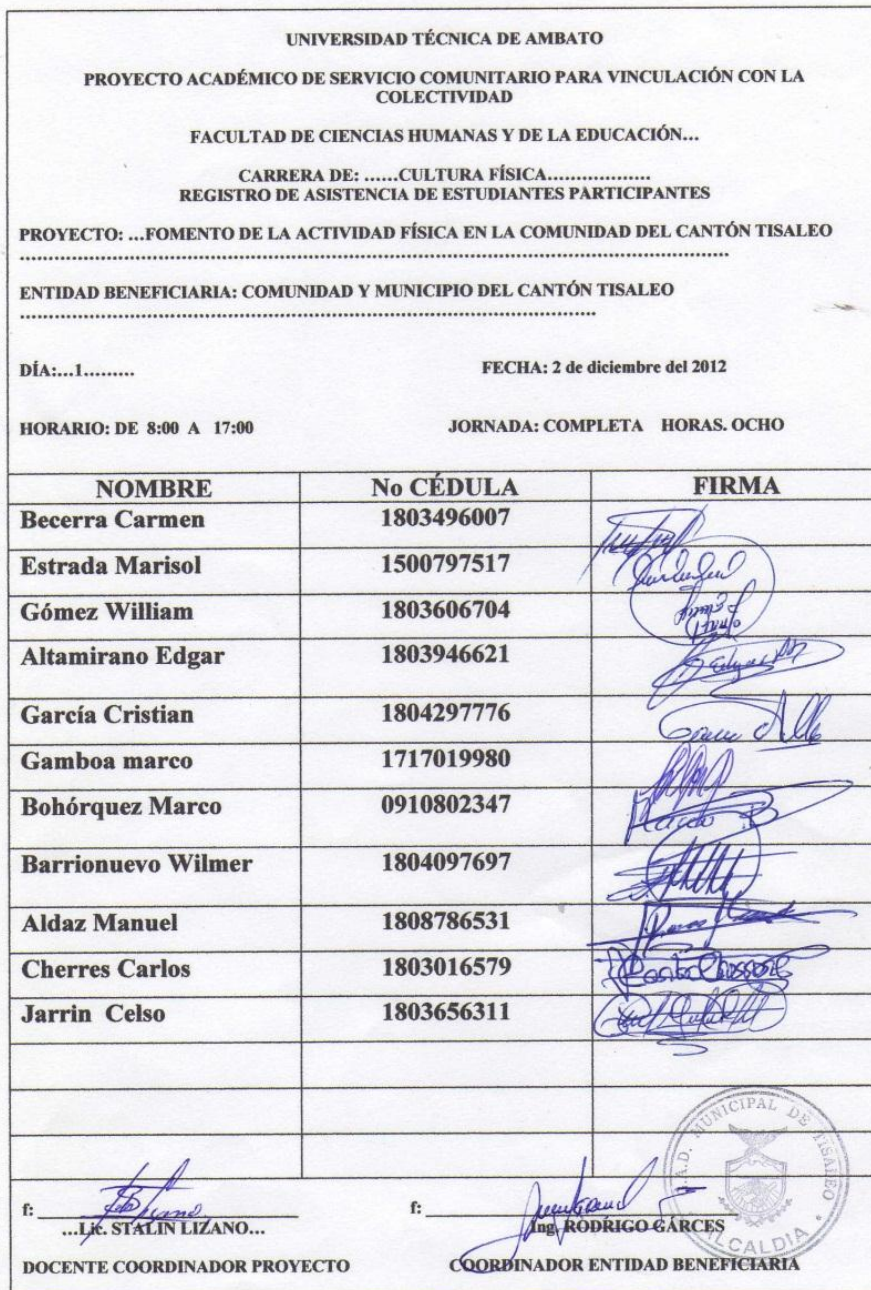 UNIVERSIDAD TÉCNICA DE AMBATO
PROYECTO ACADÉMICO DE SERVICIO COMUNITARIO PARA VINCULACIÓN CON LA
COLECTIVIDAD
FACULTAD DE CIENCIAS HUMANAS Y DE LA EDUCACIÓN...
CARRERA DE: ......CULTURA FÍSICA...................
REGISTRO DE ASISTENCIA DE ESTUDIANTES PARTICIPANTES
PROYECTO: ...FOMENTO DE LA ACTIVIDAD FÍSICA EN LA COMUNIDAD DEL CANTÓN TISALEO
ENTIDAD BENEFICIARIA: COMUNIDAD Y MUNICIPIO DEL CANTÓN TISALEO
DÍA:...1......... FECHA: 2 de diciembre del 2012
HORARIO: DE 8:00 A 17:00 JORNADA: COMPLETA HORAS. OCHO
NOMBRE No CÉDULA FIRMA
Becerra Carmen 1803496007
Estrada Marisol 1500797517
Gómez William 1803606704
Altamirano Edgar 1803946621
García Cristian 1804297776
Gamboa marco 1717019980
Bohórquez Marco 0910802347
Barrionuevo Wilmer 1804097697
Aldaz Manuel 1808786531
Cherres Carlos 1803016579
Jarrin Celso 1803656311
G.A.D. MUNICIPAL DE TISALEO
ALCALDIA
f: f:
...Lic. STALIN LIZANO... Ing. RODRIGO GÁRCES
DOCENTE COORDINADOR PROYECTO COORDINADOR ENTIDAD BENEFICIARIA